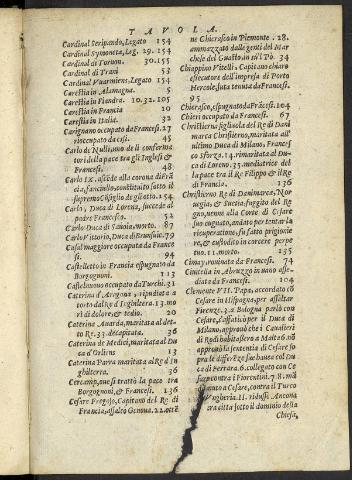 TAVOLA.
Cardinal Seripando, Legato 154
Cardinal Symoneta, Leg. 29. 154
Cardinal di Tornon. 30. 155
Cardinal di Trani 53
Cardinal Vuarmiens, Legato 154
Carestia in Alamagna. 5
Carestia in Fiandra. 10. 32. 105
Carestia in Francia 10
Carestia in Italia. 32
Carignano occupato da Francesi. 27
rioccupato da cesi. 45
Carlo de Nulli, uno de li conferma
tori della pace tra gli Inglesi &
Francesi. 48
Carlo IX. ascède alla corona di Frã
cia, fanciullo, constituito sotto il
supremo Cõsiglio de gli otto. 154
Carlo, Duca di Lorena, succede al
padre Francesco. 52
Carlo Duca di Sauoia, morto. 87
Carlo Vittorio, Duca di Brunsuic. 79
Casal maggiore occupato da France
si. 94
Castelletto in Francia espugnato da
Borgognoni. 113
Castelnouo occupato da Turchi. 31
Caterina d'Aragona, ripudiata
tor dal Re d'Inghilterra. 13. mo
rì di dolore, & tedio. 20
Caterina Auarda, maritata al det
to Re. 33. decapitata. 36
Caterina de Medici, maritata al Du
ca d'Orliens 13
Caterina Parra maritata al Re d'In
ghilterra. 36
Cercamp, que si trattò la pace tra
Borgognoni, & Francesi. 136
Cesare Fregoso, Capitano del Re di
Francia, assalto Genoua. 22. otte
ne Chierasco in Piemonte. 28.
ammazzato dalle genti del Mar
chese del Guasto, in sù'l Pò. 34
Chiappino Vitelli, Capitano chiaro
essecutore dell'impresa di Porto
Hercole, suta tenuta da Francesi.
95
Chierasco, espugnato da Frãcesi. 104
Chieri occupato da Francesi. 67
Christierna figliuola del Re di Dani
marca Christierno, maritata all'
ultimo Duca di Milano, France
sco Sforza. 14. rimaritata al Du
ca di Lorena. 35. mediatrice del
la pace tra il Re Filippo & il Re
di Francia. 136
Christierno Re di Danimarca, Nor
uegia, & Suetia, fuggito del Re
gno, uenne alla Corte di Cesare
suo cognato, andato per tentar la
ricuperatione, fu fatto prigionie
re, & custodito in carcere perpe
tuo. 11. morto. 135
Cimay, rouinata da Francesi. 74
Ciuitella in Abruzzo in uano asse-
diata da Francesi. 104
Clemente VII. Papa, accordato cõ
Cesare in Hispagna, per assaltar
Firenze. 3. a Bologna parlò con
Cesare, & assaltò per il Duca di
Milano, approuò che i Caualieri
di Rodi habitassero a Malta. 6. nõ
approuò la sententia di Cesare so
pra le differẽze sue hauute col Du
ca di Ferrara. 6. collegato con Ce
sare contra i Fiorentini. 7. 8. mã
aiuto a Cesare, contra il Turco
Vngheria. 11. ridusse Ancona
ra città sotto il dominio della
Chiesa,